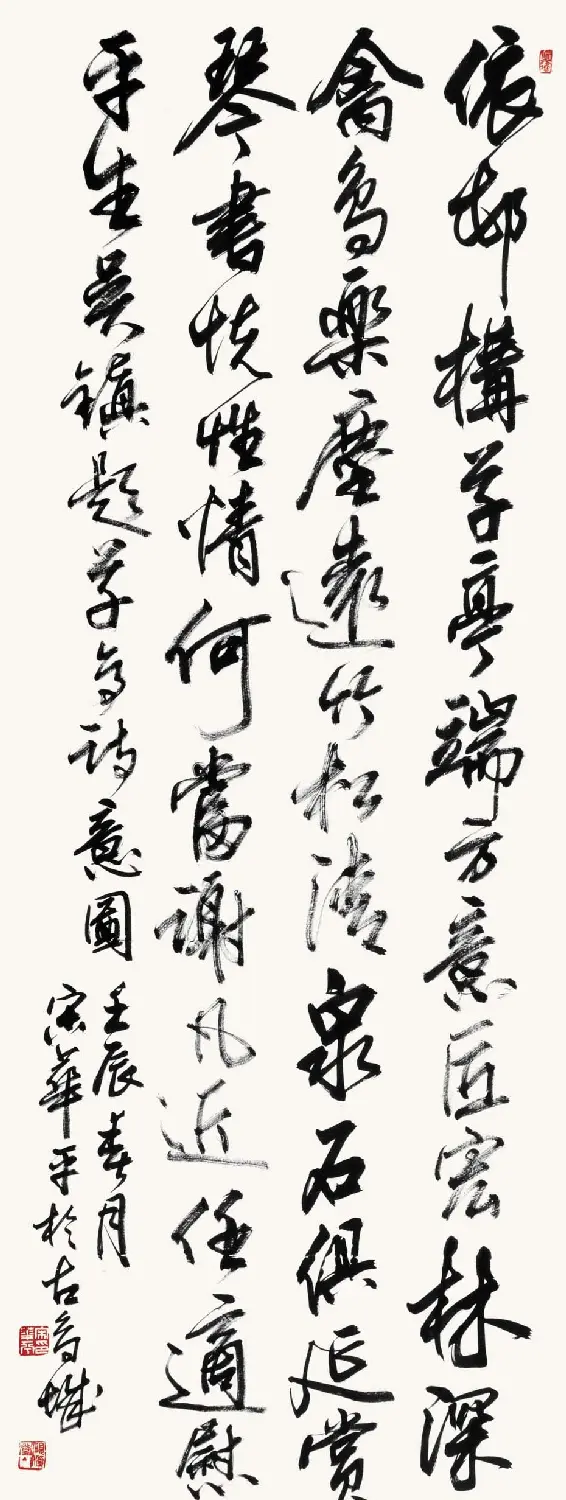 依邨構草亭瑞方意匠宏林深
禽鳥樂塵遠竹松清泉石俱延賞
琴書悅性情何當謝凡近任適慰
平生吳鎮題草亭詩意圖
壬辰春月
宋華平於古商城